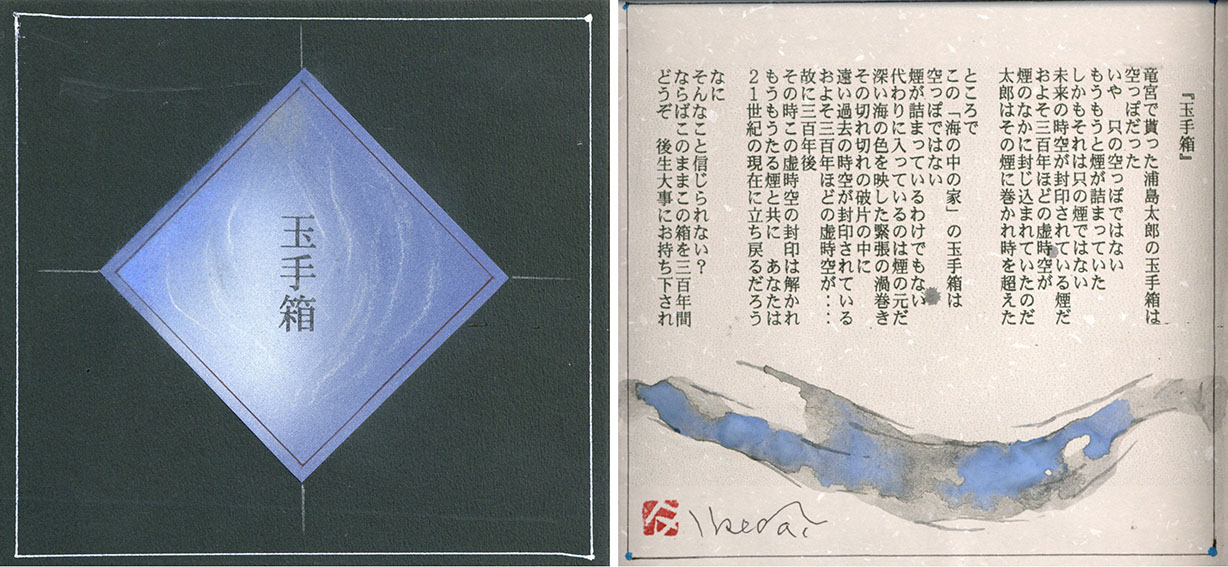 玉手箱
『玉手箱』
竜宮で貰った浦島太郎の玉手箱は
空っぽだった
いや　只の空っぽではない
もうもうと煙が詰まっていた
しかもそれは只の煙ではない
未来の時空が封印されている煙だ
およそ三百年ほどの虚時空が
煙のなかに封じ込まれていたのだ
太郎はその煙に巻かれ時を超えた
ところで
この「海の中の家」の玉手箱は
空っぽではない
煙が詰まっているわけでもない
代わりに入っているのは煙の元だ
深い海の色を映した緊張の渦巻き
その切れ切れの破片の中に
遠い過去の時空が封印されている
およそ三百年ほどの虚時空が・・・
故に三百年後
その時この虚時空の封印は解かれ
もうもうたる煙と共に　あなたは
２１世紀の現在に立ち戻るだろう
なに
そんなこと信じられない？
ならばこのままこの箱を三百年間
どうぞ　後生大事にお持ち下され